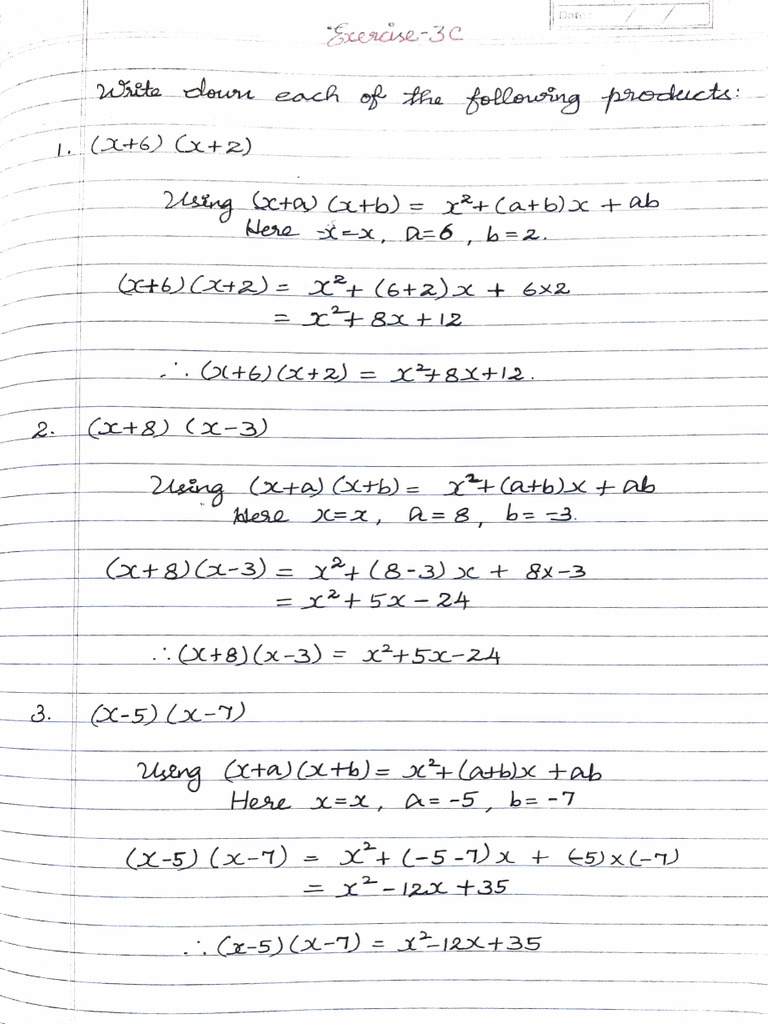 Date: / /
Exercise-3C
Write down each of the following products:
1. (x+6) (x+2)
Using (x+a) (x+b) = x²+(a+b)x + ab
Here x=x, a=6, b=2.
(x+6)(x+2) = x²+ (6+2)x + 6×2
= x²+ 8x+12
∴ (x+6)(x+2) = x²+8x+12.
2. (x+8) (x-3)
Using (x+a) (x+b) = x²+(a+b)x + ab
Here x=x, a=8, b=-3.
(x+8)(x-3) = x²+(8-3)x + 8x-3
= x²+5x-24
∴ (x+8)(x-3) = x²+5x-24
3. (x-5)(x-7)
Using (x+a)(x+b)= x²+(a+b)x +ab
Here x=x, a=-5, b=-7
(x-5) (x-7) = x²+(-5-7)x + (-5)×(-7)
= x²-12x+35
∴ (x-5)(x-7) = x²-12x+35